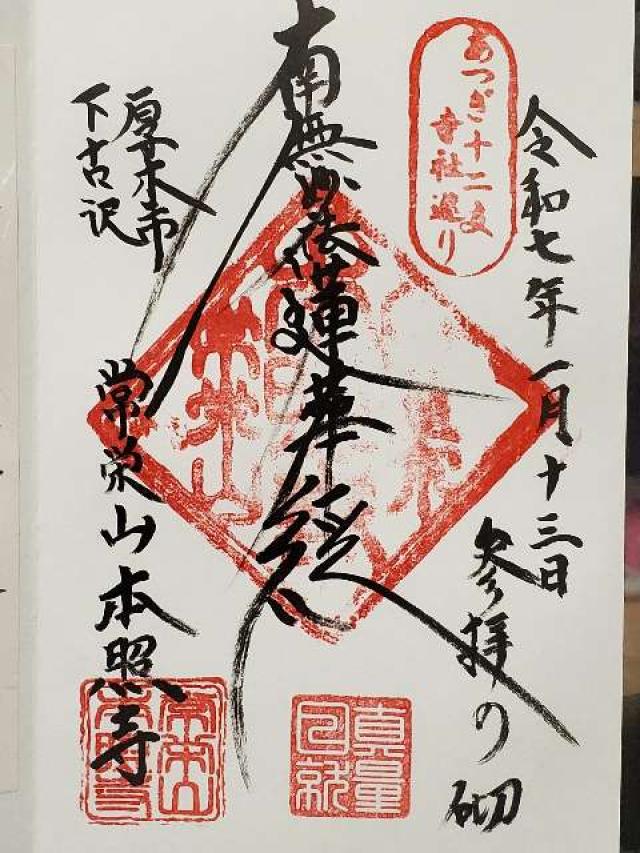 令和七年一月十三日
参拝の砌
あつぎ十二支
寺社巡り
南無妙法蓮華経
厚木市
下古沢
常栄山本照寺